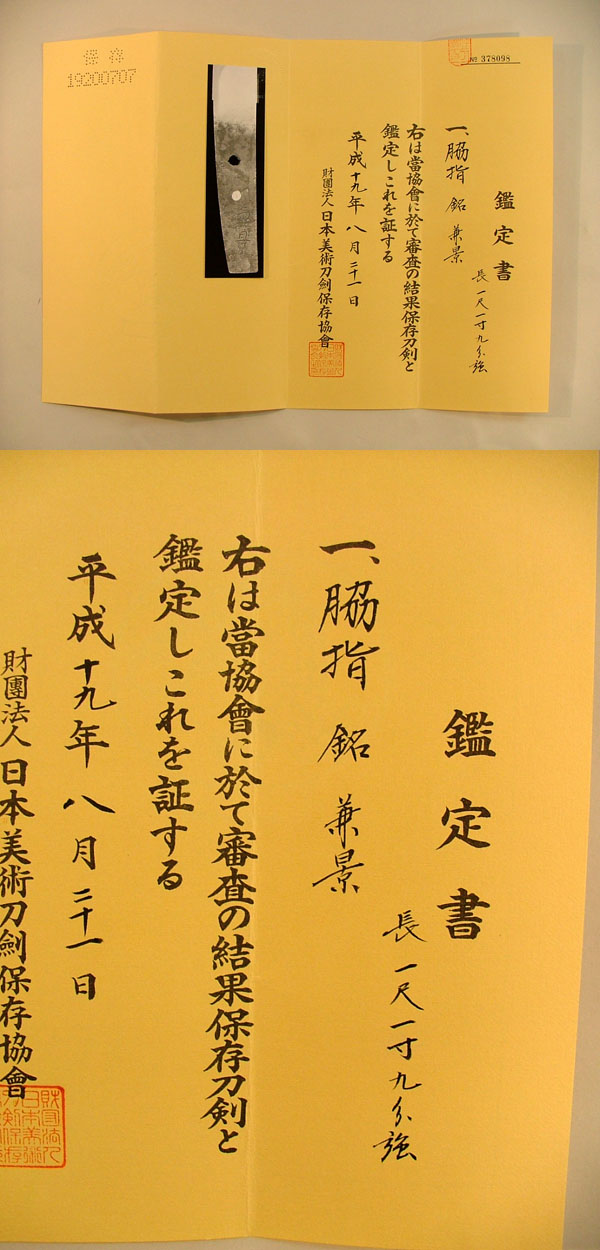 保存
19200707
№ 378098
鑑定書
一、脇指 銘 兼景
長一尺一寸九分強
右は當協會に於て審査の結果保存刀剣と
鑑定しこれを証する
平成十九年八月二十一日
財團法人日本美術刀劍保存協會
鑑定書
一、脇指 銘 兼景
長一尺一寸九分強
右は當協會に於て審査の結果保存刀剣と
鑑定しこれを証する
平成十九年八月二十一日
財團法人日本美術刀劍保存協會